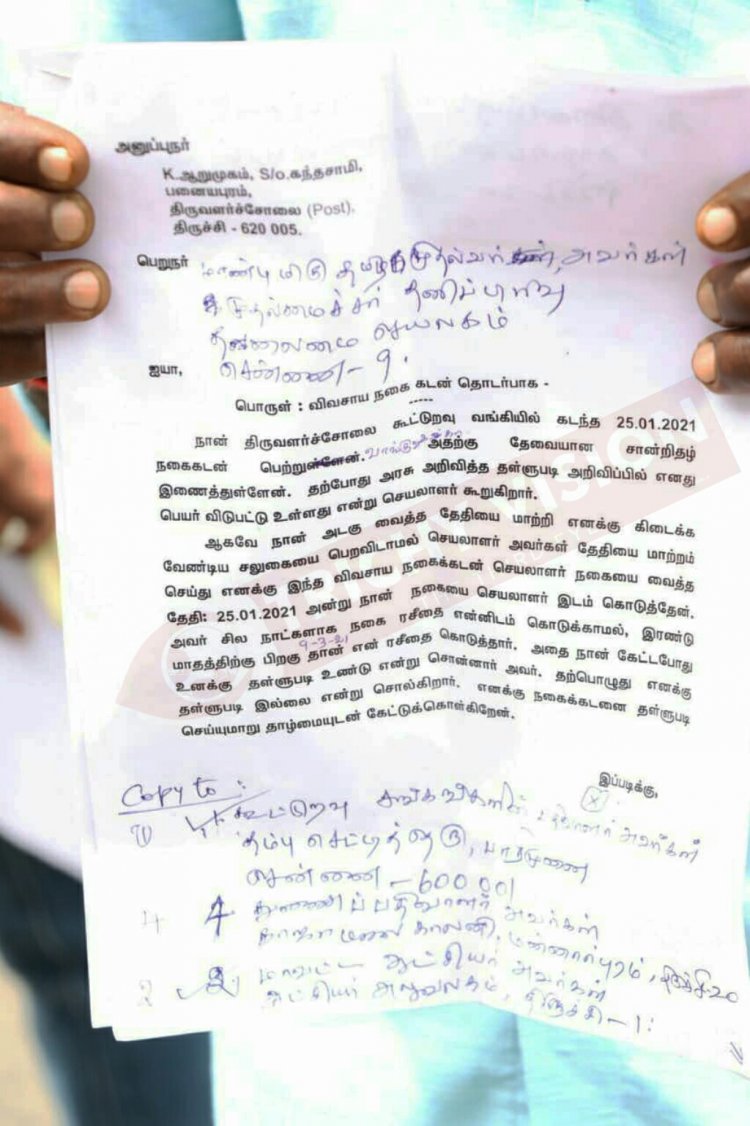 அனுப்புநர்
K.ஆறுமுகம், S/o.கந்தசாமி,
பனையபுரம்,
திருவளர்ச்சோலை (Post),
திருச்சி - 620 005.
பெறுநர்
மாண்புமிகு தமிழக முதல்வர் அவர்கள்
முதல்மைச்சர் தனிப்பிரிவு
தலைமை செயலகம்
சென்னை - 9.
ஐயா,
பொருள் : விவசாய நகை கடன் தொடர்பாக -
நான் திருவளர்ச்சோலை கூட்டுறவு வங்கியில் கடந்த 25.01.2021
நகைகடன் பெற்றுள்ளேன். அதற்கு தேவையான சான்றிதழ்
இணைத்துள்ளேன். தற்போது அரசு அறிவித்த தள்ளுபடி அறிவிப்பில் எனது
பெயர் விடுபட்டு உள்ளது என்று செயலாளர் கூறுகிறார்.
ஆகவே நான் அடகு வைத்த தேதியை மாற்றி எனக்கு கிடைக்க
வேண்டிய சலுகையை பெறவிடாமல் செயலாளர் அவர்கள் தேதியை மாற்றம்
செய்து எனக்கு இந்த விவசாய நகைக்கடன் செயலாளர் நகையை வைத்த
தேதி: 25.01.2021 அன்று நான் நகையை செயலாளர் இடம் கொடுத்தேன்.
அவர் சில நாட்களாக நகை ரசீதை என்னிடம் கொடுக்காமல், இரண்டு
9-3-21
மாதத்திற்கு பிறகு தான் என் ரசீதை கொடுத்தார். அதை நான் கேட்டபோது
உனக்கு தள்ளுபடி உண்டு என்று சொன்னார் அவர். தற்பொழுது எனக்கு
தள்ளுபடி இல்லை என்று சொல்கிறார். எனக்கு நகைக்கடனை தள்ளுபடி
செய்யுமாறு தாழ்மையுடன் கேட்டுக்கொள்கிறேன்.
இப்படிக்கு,
Copy to :
கூட்டுறவு சங்கங்களின் பதிவாளர் அவர்கள்
தம்பு செட்டித்தெரு, பாரிமுனை
சென்னை - 600 001
துணைப்பதிவாளர் அவர்கள்
காலனி, மன்னார்புரம், திருச்சி-20
மாவட்ட ஆட்சியர் அவர்கள்
ஆட்சியர் அலுவலகம், திருச்சி - 1.
TRICHY VISION